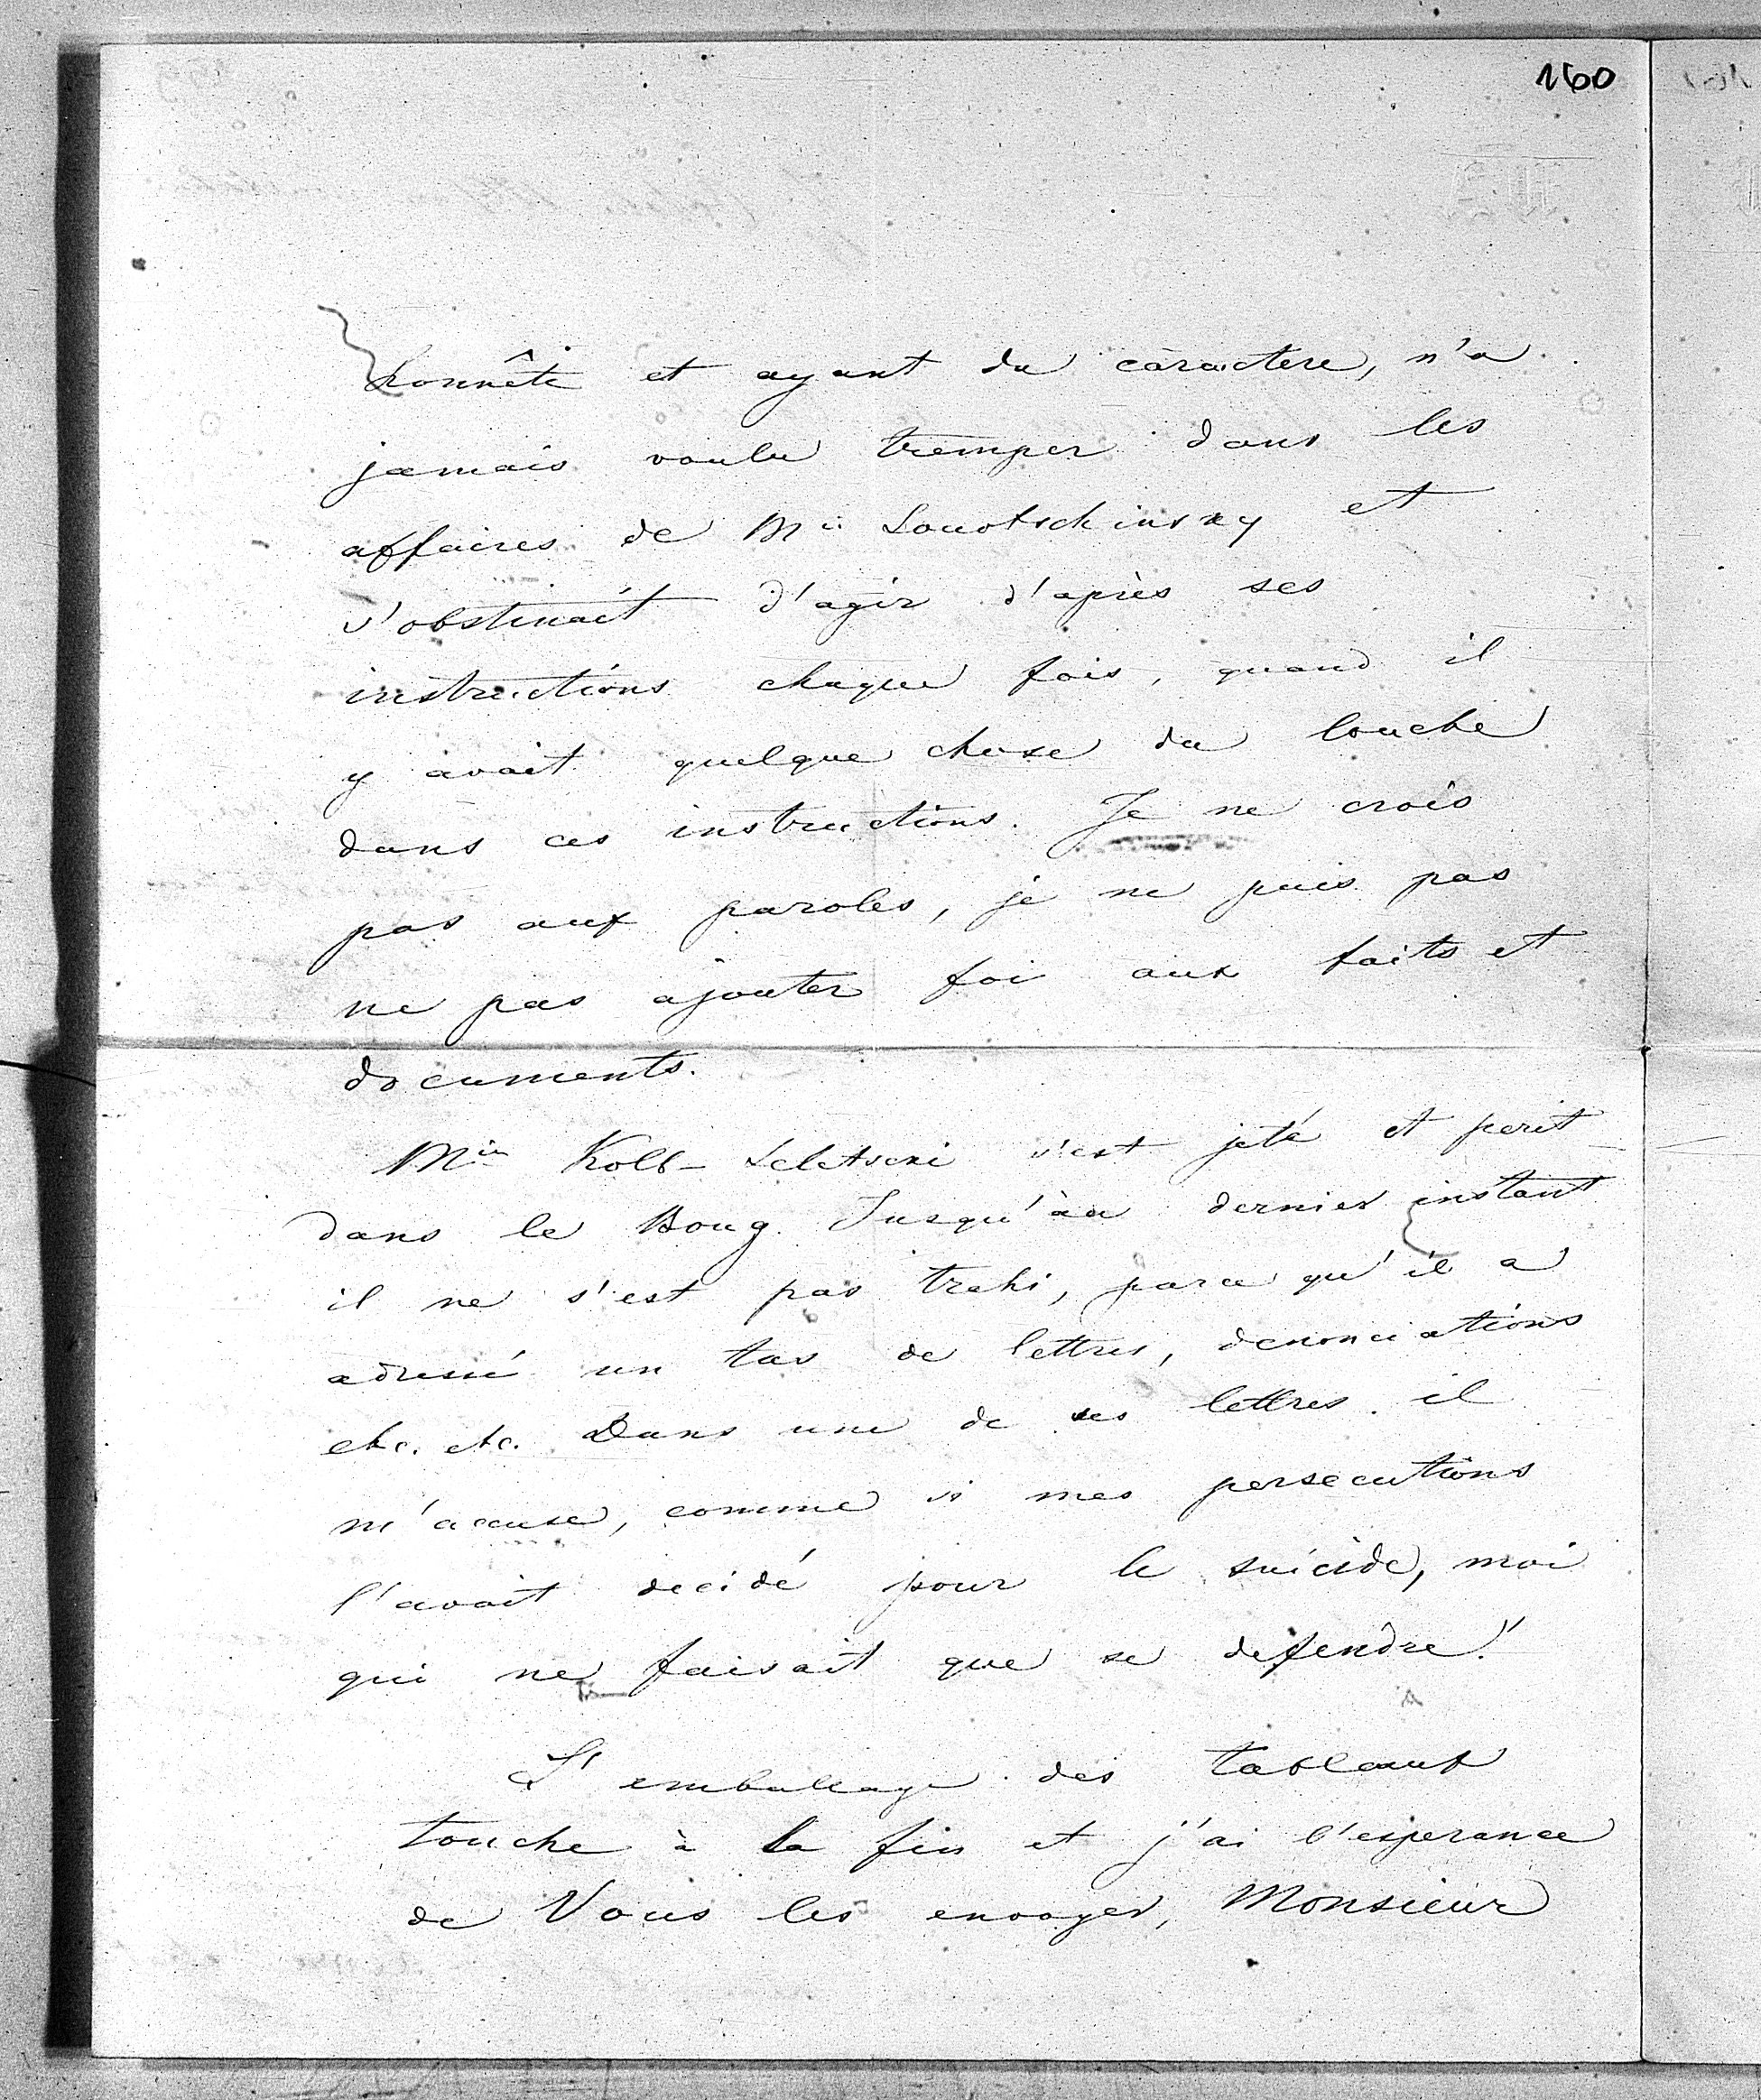 160
honnête et ayant du caractere, n'a
jamais voulu tremper dans les
affaires de Mr Louotschinsky et
s'obstinait d'agir d'après ses
instructions chaque fois, quand il
y avait quelque chose du louche
dans ces instructions. Je ne crois
pas aux paroles, je ne puis pas
ne pas ajouter foi aux faits et
documents.
Mr Kolb-Seletski s'est jeté et perit
dans le Boug. Jusqu'àu dernier instant
il ne s'est pas trahi, parce qu'il a
adressé un tas de lettres, denonciations
etc. etc. Dans une de ses lettres il
m'accuse, comme si mes persecutions
l'avait decidé pour le suicide, moi
qui ne faisait que se defendre!
L'emballage des tableaux
touche à la fin et j'ai l'esperance
de Vous les envoyer, Monsieur